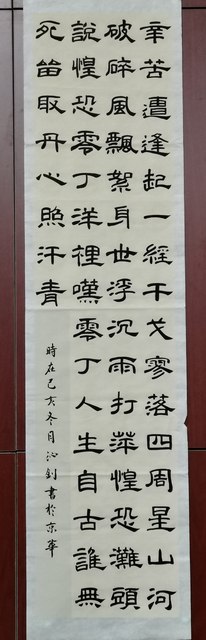 辛苦遭逢起一經干戈寥落四周星山河
破碎風飄絮身世浮沉雨打萍惶恐灘頭
說惶恐零丁洋裡嘆零丁人生自古誰無
死留取丹心照汗青
時在己亥冬月沁釗書於京華